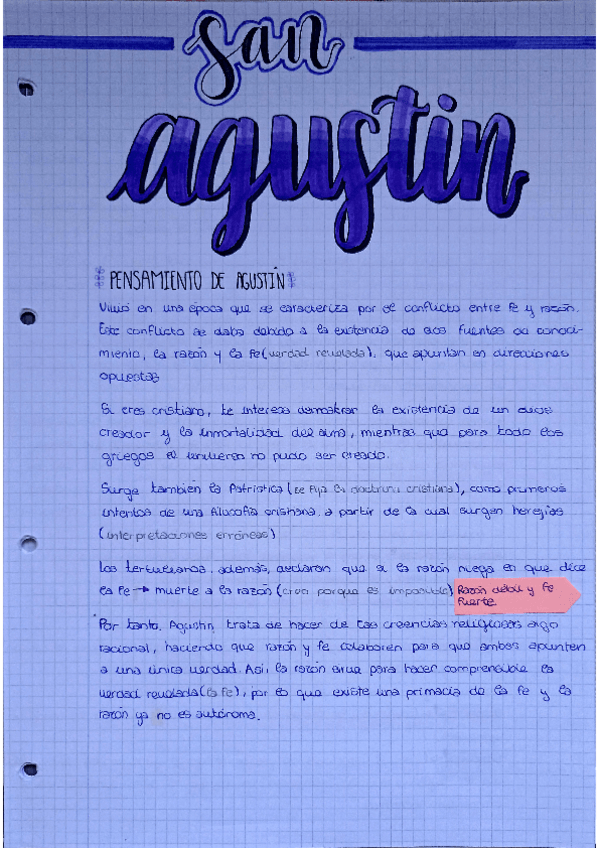 san
agustin
PENSAMIENTO DE AGUSTÍN
Vivió en una época que se caracteriza por el conflicto entre fe y razón.
Este conflicto se daba debido a la existencia de dos fuentes de conoci-
miento, la razón y la fe (verdad revelada), que apuntan en direcciones
opuestas
Si eres cristiano, te interesa demostrar la existencia de un dios
creador y la inmortalidad del alma, mientras que para todo los
griegos el universo no pudo ser creado.
Surge también la Patrística (se fija la doctrina cristiana), como primeros
intentos de una filosofía cristiana, a partir de la cual surgen heregías
(interpretaciones erróneas)
Los tertulianos, además, declaran que si la razón niega en que dice
la fe → muerte a la razón (creo porque es imposible) Razón débil y fe
fuerte.
Por tanto, Agustín, trata de hacer de las creencias religiosas algo
racional, haciendo que razón y fe colaboren para que ambas apunten
a una única verdad. Así, la razón sirve para hacer comprensible la
verdad revelada (la fe), por lo que existe una primacía de la fe y la
razón ya no es autónoma.